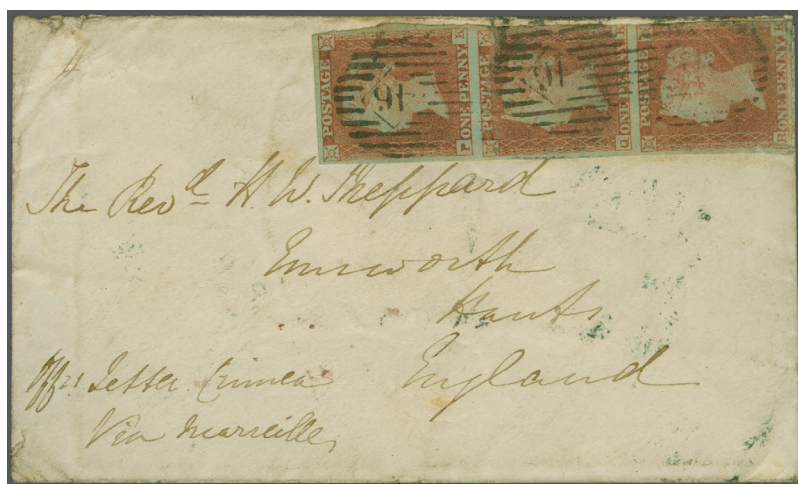 POSTAGE ONE PENNY P E
POSTAGE ONE PENNY Q
POSTAGE ONE PENNY R E
91
91
The Revd H. W. Sheppard
Emsworth
Hants
England
Offrs Letter Crimea
Via Marseilles